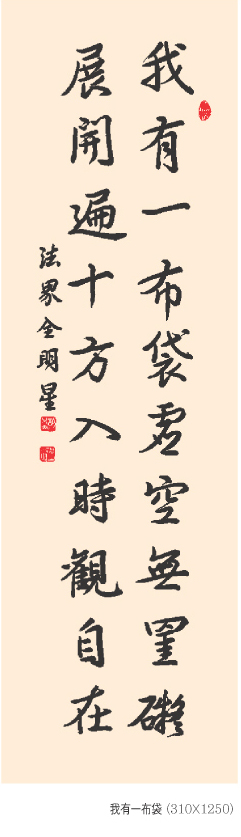 我有一布袋虛空無罣礙
展開遍十方入時觀自在
法界金明星
我有一布袋 (310X1250)